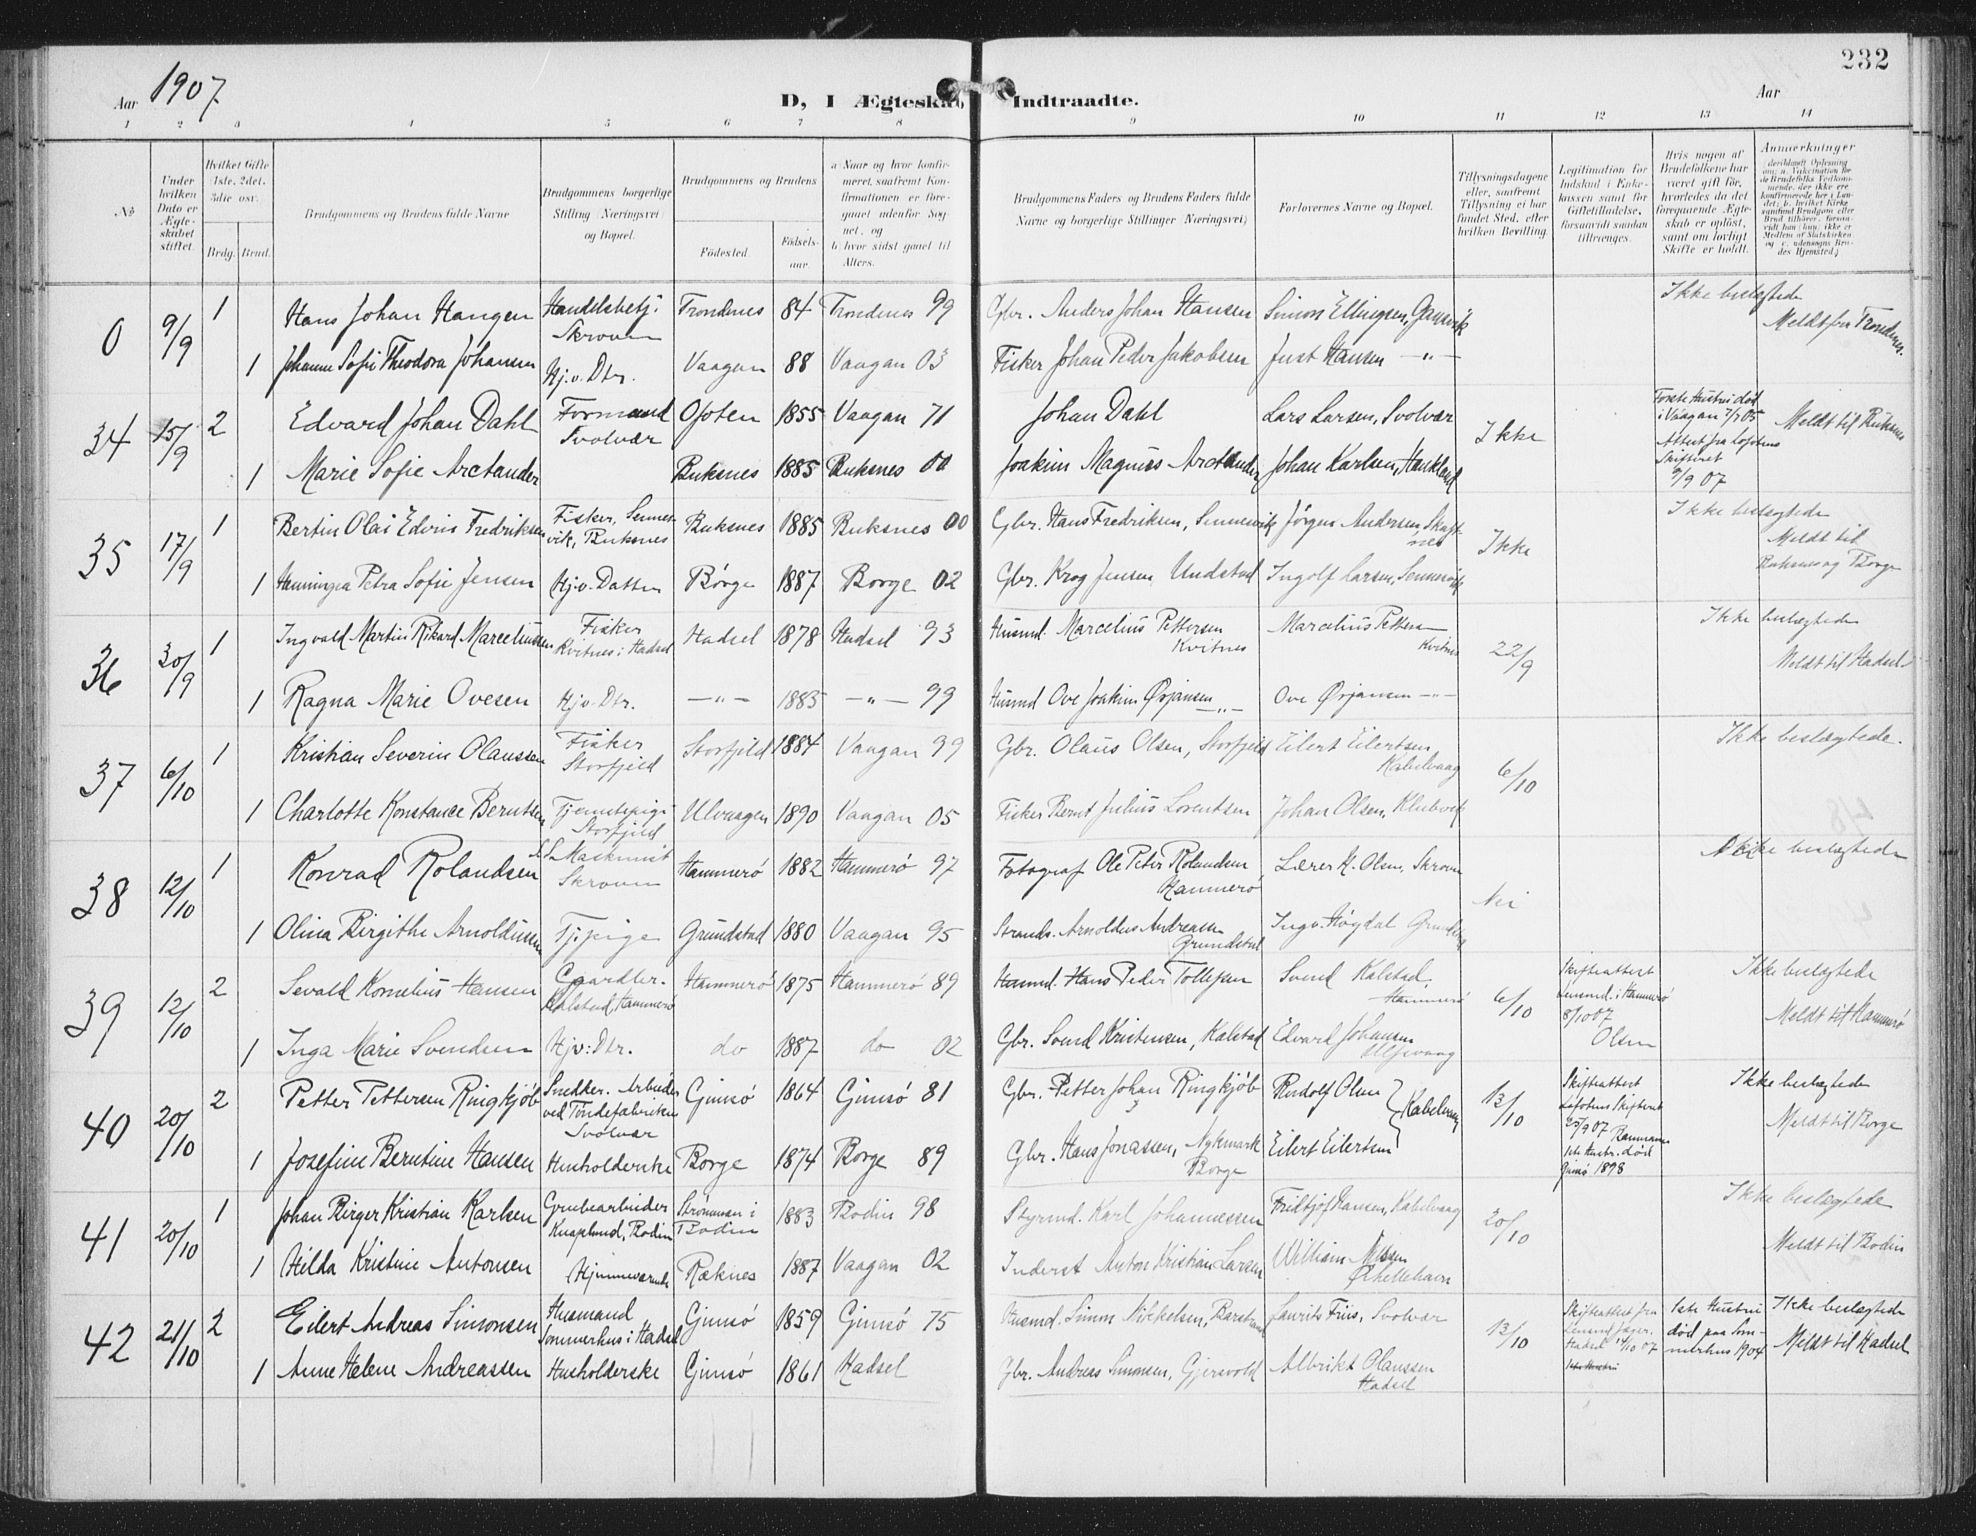 232
Aar 1907
D, I Ægteskab Indtraadte.
Aar
1 2 3 4 5 6 7 8 9 10 11 12 13 14
No
Under hvilken Dato er Ægteskabet stiftet.
Hvilket Gifte (1ste, 2det, 3die osv.
Brdg. Brud.
Brudgommens og Brudens fulde Navne
Brudgommens borgerlige Stilling (Næringsvei) og Bopæl.
Brudgommens og Brudens
Fødested.
Fødselsaar.
a Naar og hvor konfirmeret, saafremt Konfirmationen er foregaaet udenfor Sognet, og
b. hvor sidst gaaet til Alters.
Brudgommens Faders og Brudens Faders fulde Navne og borgerlige Stillinger Næringsvei)
Forlovernes Navne og Bopæl.
Tillysningsdagene eller, saafremt Tillysning ei har fundet Sted, efter hvilken Bevilling.
Legitimation for Indskud i Enkekassen samt for Giftetilladelse, forsaavidt saadan tiltrænges.
Hvis nogen af Brudefolkene har været gift før, hvorledes da det foregaaende Ægteskab er opløst, samt om lovligt Skifte er holdt.
Anmærkninger
0 9/9 1 Hans Johan Hangen Handelsbetj. Skroven Trondenes 84 Trondenes 99 Gbr. Anders Johan Hansen Simon Ellingsen, Ikke beslægtede Meldt fra Trondenes.
1 Johanne Sofie Theodora Johansen Hj.v. Dtr. Vaagan 88 Vaagan 03 Fisker Johan Peder Jakobsen Just Hansen —"—
34 15/9 2 Edvard Johan Dahl Formand Svolvær Ofoten 1855 Vaagan 71 Johan Dahl Lars Larsen, Svolvær Ikke Første Hustru død i Vaagan 7/7 05 Attest fra Lofotens Skifteret 9/9 07 Meldt til Buksnes
1 Marie Sofie Arctander Buksnes 1885 Buksnes 00 Joakim Magnus Arctander Johan Karlsen, Haukland
35 17/9 1 Bertin Olai Edvin Fredriksen Fisker, Sennesvik, Buksnes Buksnes 1885 Buksnes 00 Gbr. Hans Fredriksen, Sennesvik Jørgen Andersen Skaftnes Ikke Ikke beslægtede Meldt til Buksnes og Borge
1 Henningea Petra Sofie Jensen Hj.v. Datter Borge 1887 Borge 02 Gbr. Krog Jensen Undstad Ingolf Larsen, Sennesvik
36 30/9 1 Ingvald Martin Rikard Marceliussen Fisker Kvitnes i Hadsel Hadsel 1878 Hadsel 93 Husmd. Marcelius Pettersen Kvitnes Marcelius Petters Kvitnes 22/9 Ikke beslægtede Meldt til Hadsel
1 Ragna Marie Ovesen Hj.v. Dtr. —"— 1883 —"— 99 Husmd Ove Joakim Ørjansen —"— Ove Ørjansen —"—
37 6/10 1 Kristian Severin Olaussen Fisker Storfjeld Storfjeld 1884 Vaagan 99 Gbr. Olaus Olsen, Storfjeld Eilert Eilertsen, Kabelvaag 6/10 Ikke beslægtede.
1 Charlotte Konstance Berntsen Tjenestepige Storfjeld Ulvaagen 1890 Vaagan 05 Fisker Bernt Julius Lorentsen Johan Olsen, Klubvik
38 12/10 1 Konrad Rolandsen Maskinist Skroven Hammerø 1882 Hammerø 97 Fotograf Ole Peter Rolandsen Hammerø Lærer H. Olsen, Skroven Nei Ikke beslægtede
1 Olina Birgithe Arnoldussen Tj.pige Grundstad 1880 Vaagan 95 Strands. Arnoldus Andreassen Grundstad Ingv. Høgdal
39 12/10 2 Sevald Kornelius Hansen Gaardbr. Kalstad, Hammerø Hammerø 1875 Hammerø 89 Husmd. Hans Peder Tollefsen Svend Kalstad, Hammerø 6/10 Skifteattest Lensmd. i Hammerø 8/10 07 Olsen Ikke beslægtede Meldt til Hammerø
1 Inga Marie Svendsen Hjv. Dtr. do 1887 do 02 Gbr. Svend Kristensen, Kalstad Edvard Johansen
40 20/10 2 Petter Pettersen Ringkjøb Snedker. Arbeider ved Tøndefabriken Svolvær Gimsø 1864 Gimsø 81 Gbr. Petter Johan Ringkjøb Rudolf Olsen Kabelvaag 13/10 Skifteattest Lofotens Skifteret 25/9 07 1ste Hustr. død Gimsø 1898 Ikke beslægtede Meldt til Borge
1 Josefine Berntine Hansen Husholderske Borge 1874 Borge 89 Gbr. Hans Jonassen, Nykmark Borge Eilert Eilertsen
41 20/10 1 Johan Birger Kristian Karlsen Grubearbeider Knaplund, Bodin Strømmen i Bodin 1883 Bodin 98 Styrmd. Karl Johannessen Fridtjof Hansen, Kabelvaag 20/10 Ikke beslægtede Meldt til Bodin
1 Hilda Kristine Antonsen Hjemmeværende Ræknes 1887 Vaagan 02 Inderst Anton Kristian Larsen William Nilsen
42 21/10 2 Eilert Andreas Simonsen Husmand Sommerhus i Hadsel Gimsø 1859 Gimsø 75 Husmd. Simon Laurits Friis, Svolvær 13/10 Skifteattest fra Hadsel 14/10 07 1ste Hustru død paa Sommerhus 1904 Ikke beslægtede Meldt til Hadsel
1 Anne Helene Andreassen Husholderske Gimsø 1861 Hadsel Gbr. Andreas Simonsen, Gjersvold Albrikt Olaussen Hadsel